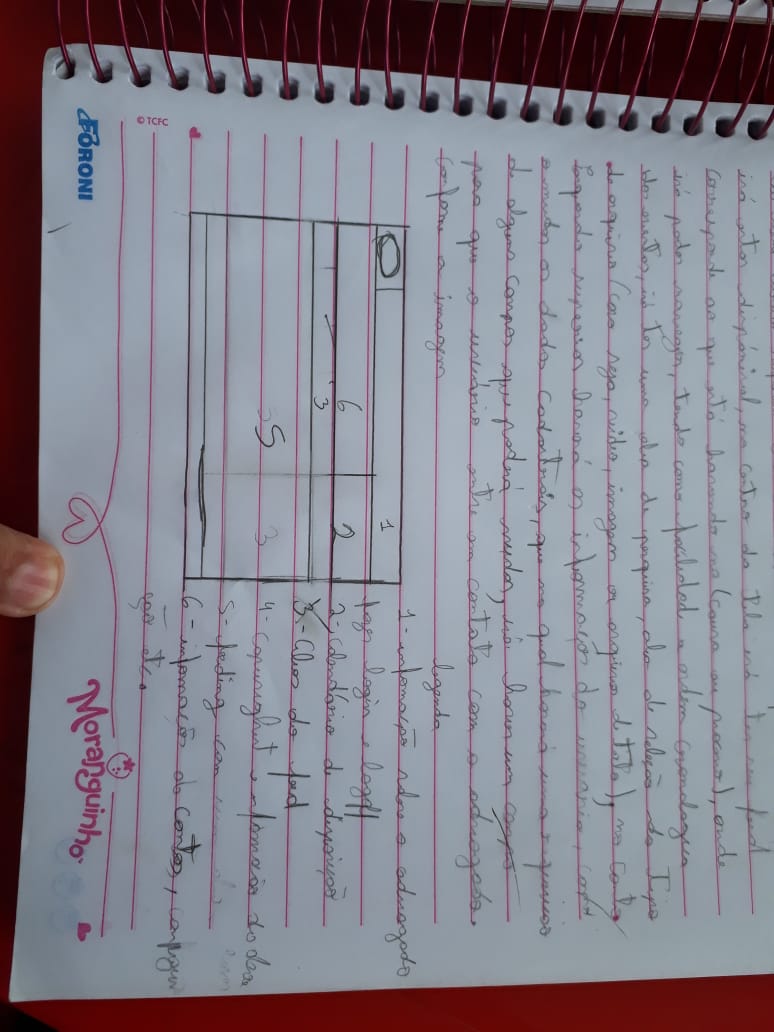 irá estar disponível, no centro da tela irá ter um feed
corresponde ao que está baseado na (causa ou processo), onde
irá poder navegar, tendo como facilidade a ordem cronologica
dos eventos, irá ter uma aba de pesquisa, aba de seleção do tipo
de arquivo (caso seja, video, imagem ou arquivo de texto), no canto
esquerdo superior haverá as informações do usuario,
os dados cadastrais, que no qual haverá uma
de alguns campos que poderá mudar, irá haver um campo
para que o usuário entre em contato com o advogado.
conforme a imagem
legenda
1- informação sobre o advogado
logo login e logoff
2- Calendário de
3- Abas do feed
4- Copyright e informação do
5- feeding com
6- informação de contas,
etc.
1
6
2
3
5
3
© TCFC
FORONI
Moranguinho